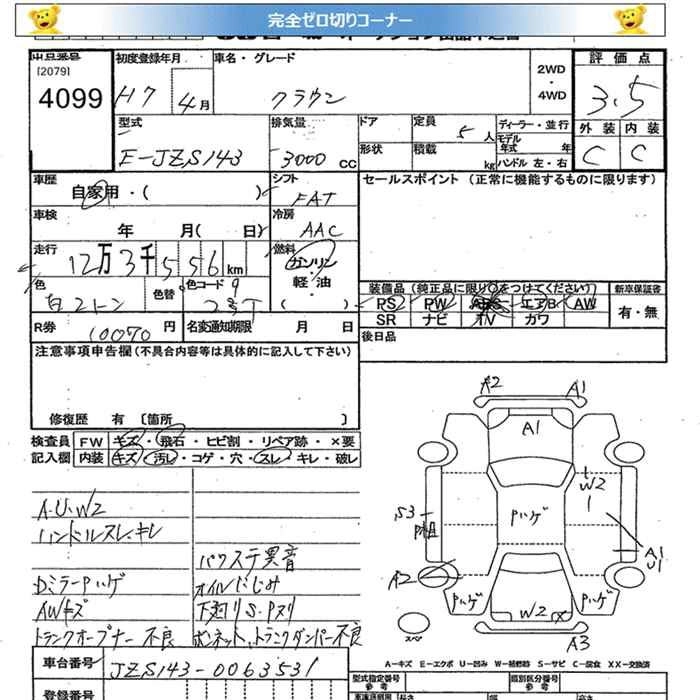 完全ゼロ切りコーナー
出品番号
[2079]
4099
初度登録年月
H7
4月
車名・グレード
クラウン
2WD
・
4WD
評価点
3.5
外装
内装
C
C
型式
E-JZS143
排気量
3000 CC
ドア
定員
5人
形状
積載
kg
ディーラー・並行
モデル
年式
年
ハンドル 左・右
車歴
自家用・( )
シフト
FAT
セールスポイント (正常に機能するものに限ります)
車検
年 月( 日)
冷房
AAC
走行
12万3千556km
燃料
ガソリン
・
軽油
( )
色
白2トン
色替
色コード
2号T
R券
10070円
名変通知期限
月 日
装備品 (純正品に限り○をつけてください)
PS
PW
ABS
エアB
AW
SR
ナビ
TV
カワ
新車保証書
有・無
後日品
注意事項申告欄(不具合内容等は具体的に記入して下さい)
修復歴 有 〔箇所 〕
検査員
記入欄
FW
キズ・飛石・ヒビ割・リペア跡・×要
内装
キズ・汚レ・コゲ・穴・スレ・キレ・破レ
A.U.W2
ハンドルスレ.キレ
パワステ異音
DミラーPハゲ
オイルにじみ
AWキズ
下廻りS.Pスリ
トランクオープナー不良
ボンネット、トランクダンパー不良
A2
A1
A1
W2
Pハゲ
S3
A1
U1
A2
Pハゲ
W2
X
Pハゲ
スペア
A3
A-キズ E-エクボ U-凹み W-補修跡 S-サビ C-腐食 XX-交換済
車台番号
JZS143-0063531
登録番号
型式指定番号
参考
類別区分番号
参考
長さ
幅
高さ